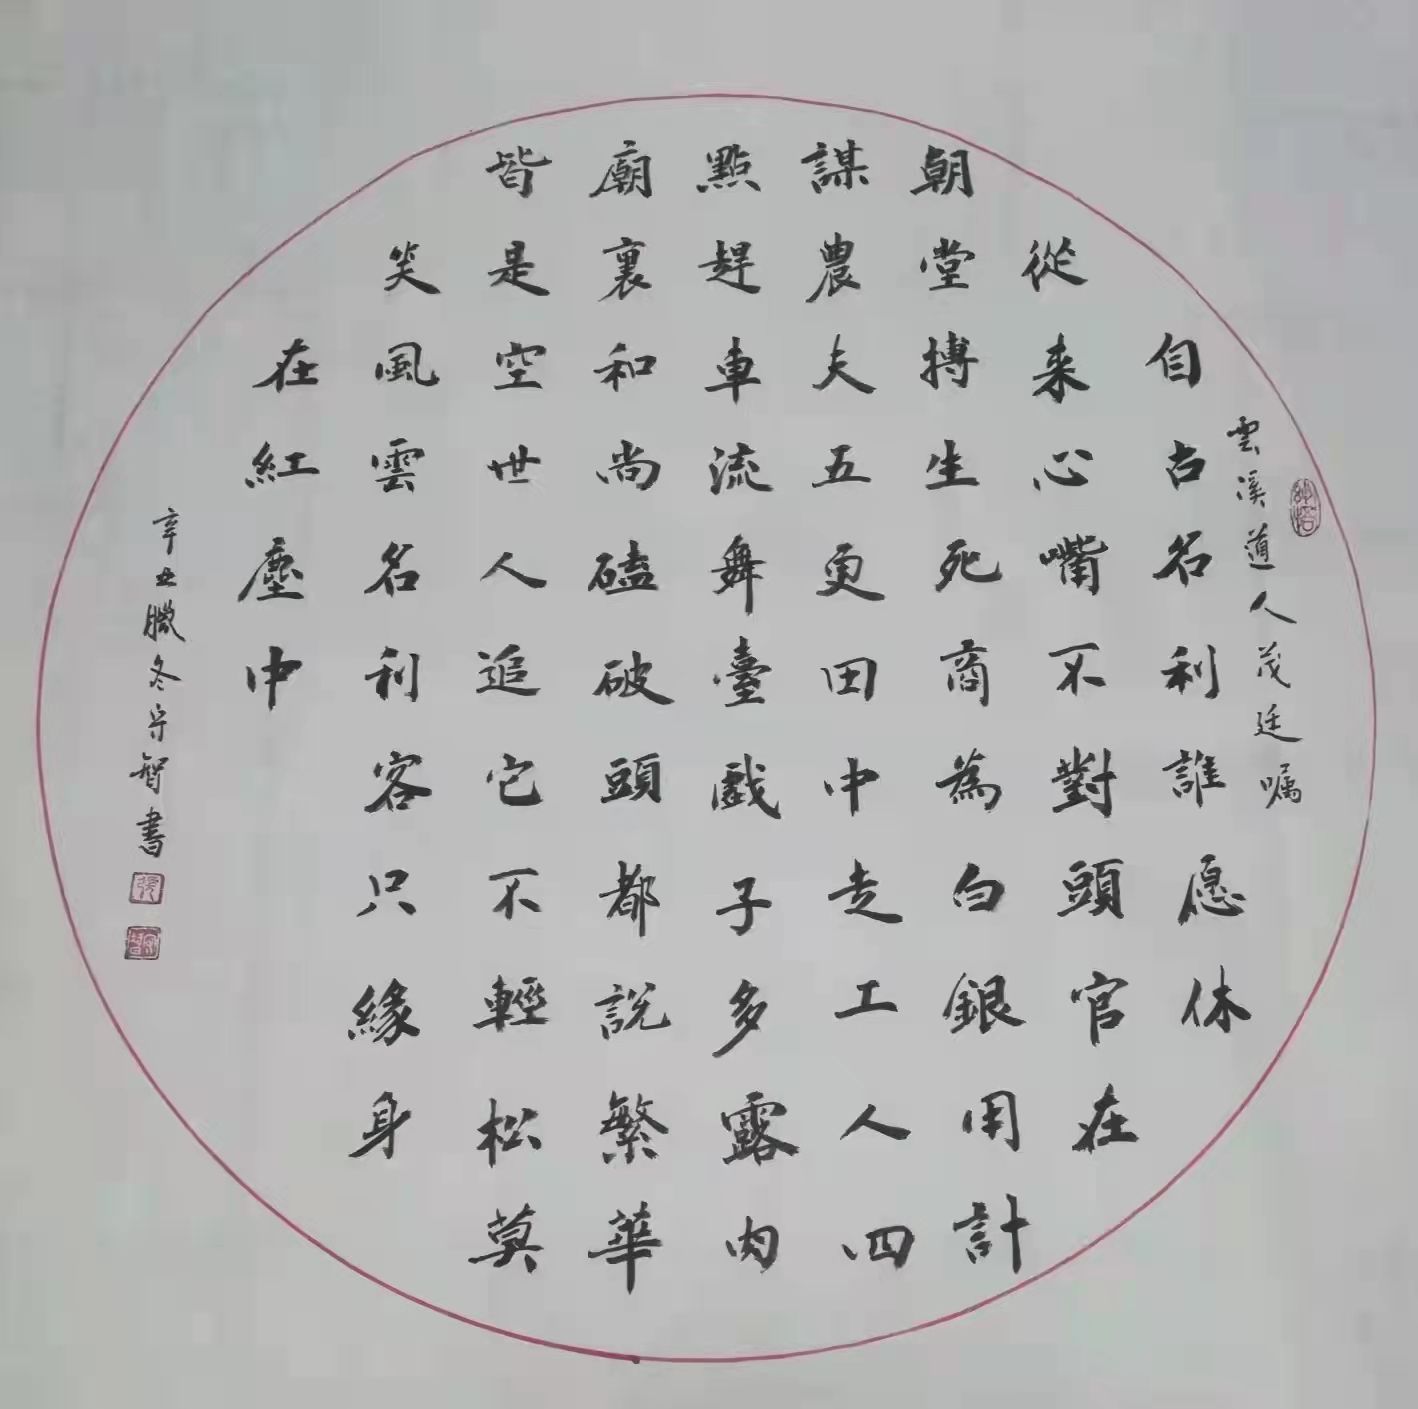 雲溪道人茂廷嘱
自古名利誰愿休
從来心嘴不對頭官在
朝堂搏生死商為白銀用計
謀農夫五更田中走工人四
點趕車流舞臺戲子多露肉
廟裏和尚磕破頭都説繁華
皆是空世人追它不輕松莫
笑風雲名利客只緣身
在紅塵中
辛丑臘冬守智書
守智